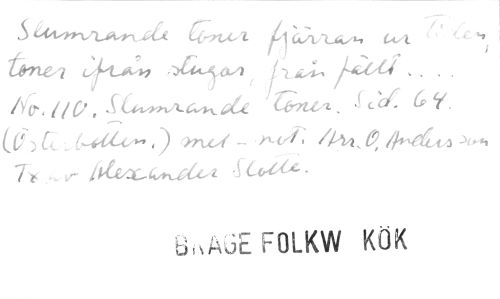 Slumrande toner fjärran ur tiden,
toner ifrån stugor, från fält....
No. 110. Slumrande toner. Sid. 64.
(Österbotten.) mel-not. Arr. O. Andersson
Tx av Alexander Slotte.
BRAGE FOLKW KÖK